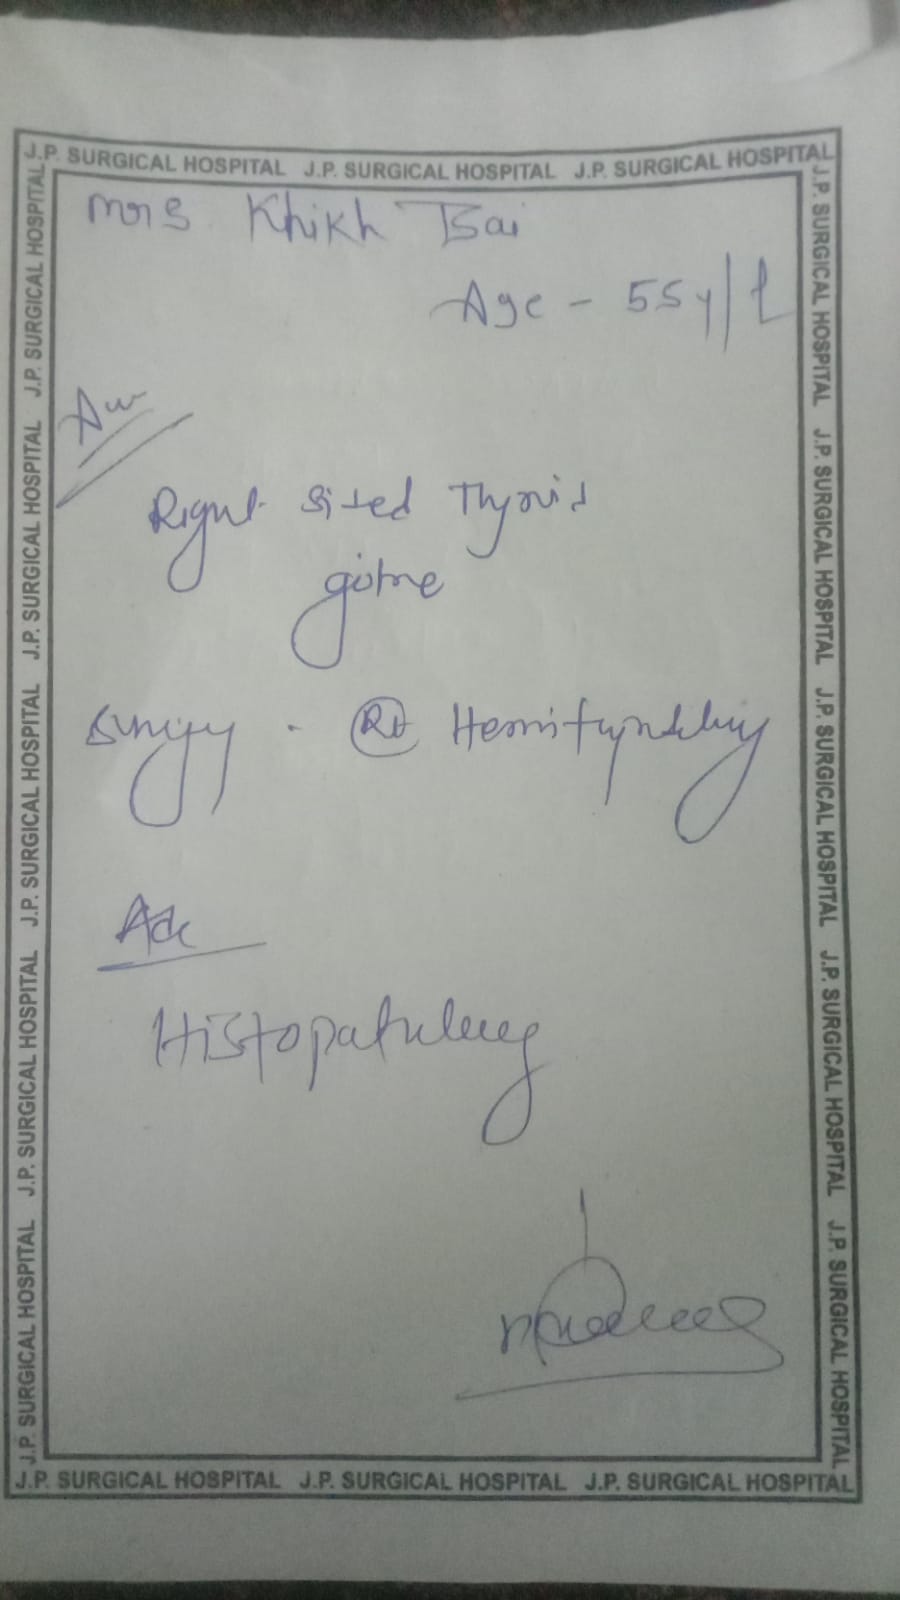 J.P. SURGICAL HOSPITAL J.P. SURGICAL HOSPITAL J.P. SURGICAL HOSPITAL
Mrs. Khikh Bai
Age - 55y/f
Right sided Thyroid
goitre
Surgery - Rt Hemithyroidectomy
Adv
Histopathology
J.P. SURGICAL HOSPITAL J.P. SURGICAL HOSPITAL J.P. SURGICAL HOSPITAL
J.P. SURGICAL HOSPITAL J.P. SURGICAL HOSPITAL J.P. SURGICAL HOSPITAL J.P. SURGICAL HOSPITAL J.P. SURGICAL HOSPITAL
J.P. SURGICAL HOSPITAL J.P. SURGICAL HOSPITAL J.P. SURGICAL HOSPITAL J.P. SURGICAL HOSPITAL J.P. SURGICAL HOSPITAL